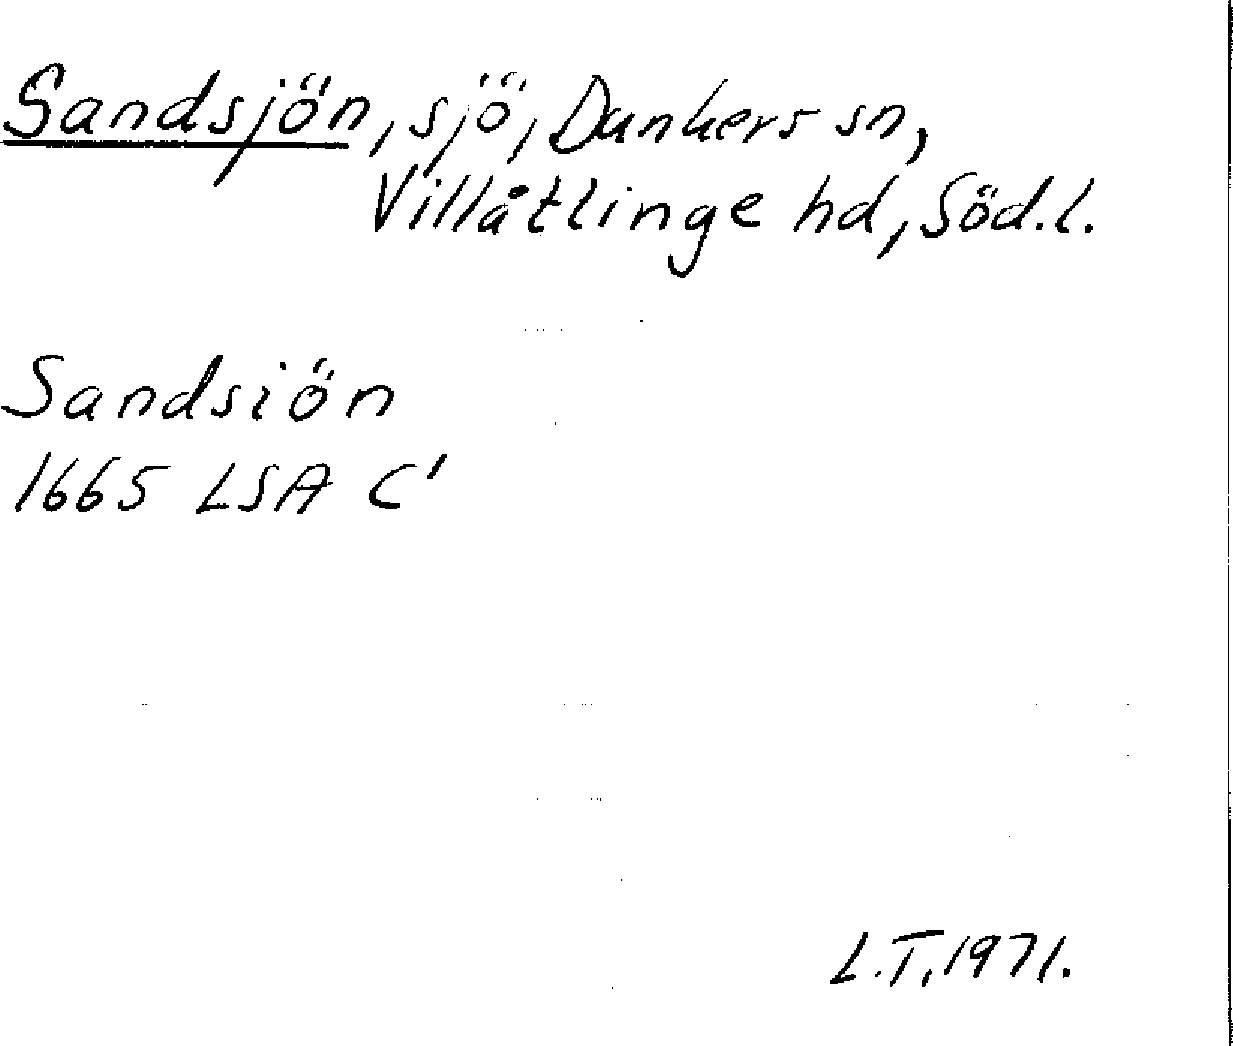 Sandsjön, sjö, Dunkers sn,
Villåttinge hd, Söd.l.
Sandsiön
1665 LSA C'
L.T. 1971.